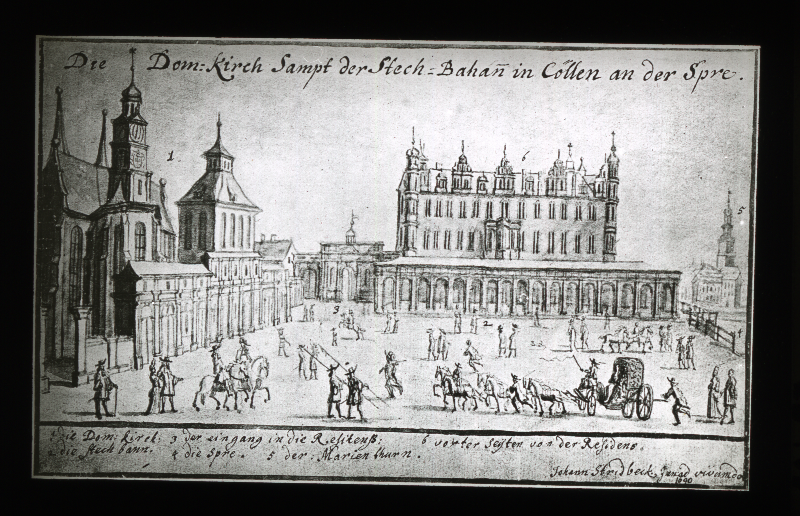 Die Dom=Kirch Sampt der Stech=Bahañ in Cöllen an der Spre.
1
6
5
3
2
4
1 die Dom: Kirch. 3 der eingang in die Residentz. 6 vorter Seyten von der Residens.
2 die Stechbann. 4 die Spre. 5 der: Marien thurn.
Johann Stridbeck
1690